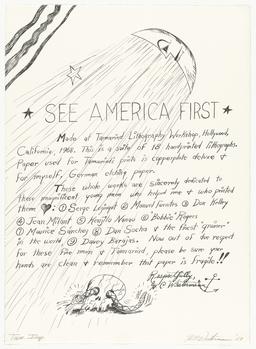 SEE AMERICA FIRST
Made at Tamarind Lithography Workshop, Hollywood,
California, 1968. This is a suite of 18 handprinted lithographs.
Paper used for Tamarind's prints is copperplate deluxe &
for myself, German etching paper.
These whole works are sincerely dedicated to
these magnificent young men who helped me & who printed
them: ① Serge Lozingot ② Manuel Fuentes ③ Don Kelley
④ Jean Milant ⑤ Kenjilo Nanao ⑥ Robbie Rogers
⑦ Maurice Sánchez ⑧ Dan Socha & the finest "grainer"
in the world, ⑨ Davey Barajas. Now out of the respect
for these fine men & Tamarind, please be sure your
hands are clean & remember that paper is fragile!!
Respectfully,
H C Westermann